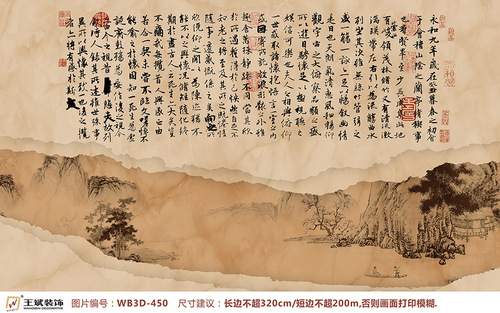 永和九年歲在癸丑暮春之初會
于會稽山陰之蘭亭脩禊事
也羣賢畢至少長咸集此地
有崇山峻領茂林脩竹又有清流激
湍暎帶左右引以為流觴曲水
列坐其次雖無絲竹管弦之
盛一觴一詠亦足以暢敘幽情
是日也天朗氣清惠風和暢仰
觀宇宙之大俯察品類之盛
所以遊目騁懷足以極視聽之
娛信可樂也夫人之相與俯仰
一世或取諸懷抱悟言一室之內
或因寄所託放浪形骸之外雖
趣舍萬殊靜躁不同當其欣
於所遇暫得於己怏然自足不
知老之將至及其所之既惓情
隨事遷感慨係之矣向之所
欣俛仰之閒以為陳迹猶不
能不以之興懷況脩短隨化終
期於盡古人云死生亦大矣豈
不痛哉每攬昔人興感之由
若合一契未嘗不臨文嗟悼不
能喻之於懷固知一死生為虛
誕齊彭殤為妄作後之視今
亦由今之視昔悲夫故列
敘時人錄其所述雖世殊事
異所以興懷其致一也後之攬
者亦將有感於斯文
王斌装饰
WANGBIN DECORATIVE
图片编号：WB3D-450 尺寸建议：长边不超320cm/短边不超200m,否则画面打印模糊.